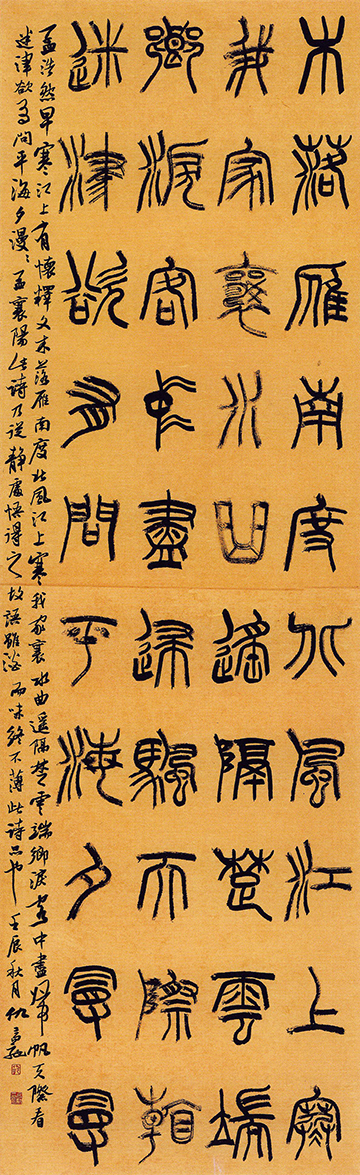 木落雁南度北風江上寒
我家襄水曲遙隔楚雲端
鄉淚客中盡歸颿天際看
迷津欲有問平海夕曼曼
孟浩然早寒江上有懷釋文木落雁南度北風江上寒我家襄水曲遥隔楚雲端鄉淚客中盡歸帆天際看
迷津欲有問平海夕漫〻孟襄陽此詩乃從靜處悟得之故語雖淡而味終不薄此詩品也壬辰秋月仇高馳